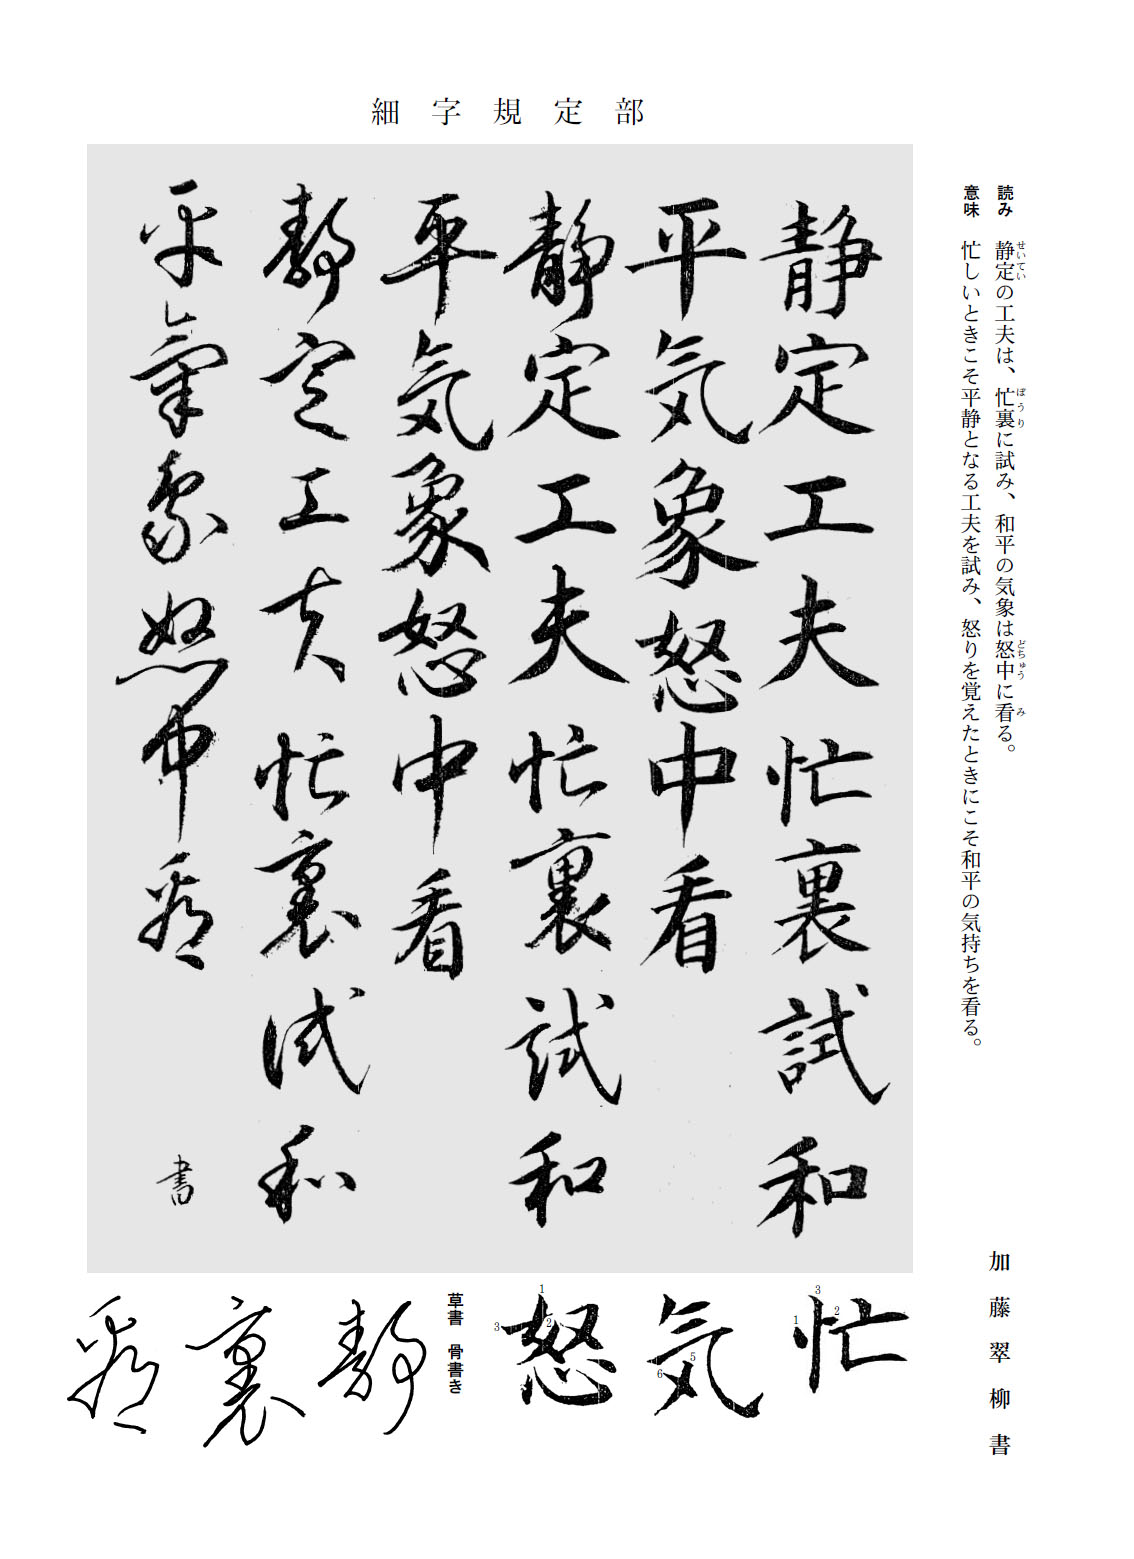 細字規定部
読み 静定の工夫は、忙裏に試み、和平の気象は怒中に看る。
せいてい ぼうり どちゅう み
意味 忙しいときこそ平静となる工夫を試み、怒りを覚えたときにこそ和平の気持ちを看る。
加藤翠柳書
静定工夫忙裏試和
平気象怒中看
静定工夫忙裏試和
平気象怒中看
静定工夫忙裏試和
平氣象怒中看
書
忙 1 2 3
気 5 6
怒 1 2 3
草書 骨書き
静
裏
看